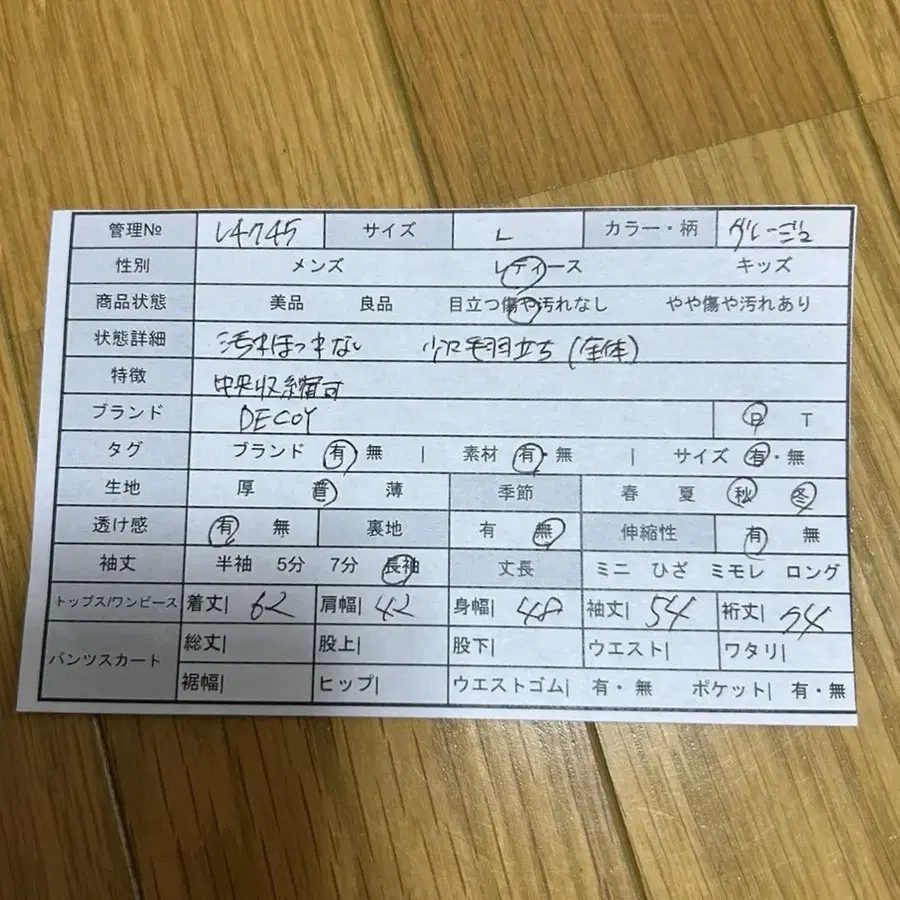 管理№ L4745 サイズ L カラー・柄 グレージュ
性別 メンズ レディース キッズ
商品状態 美品 良品 目立つ傷や汚れなし やや傷や汚れあり
状態詳細 汚れほつれない 少し毛羽立ち(全体)
特徴 中央収縮可
ブランド DECOY 口 T
タグ ブランド 有・無 | 素材 有・無 | サイズ 有・無
生地 厚 普 薄 季節 春 夏 秋 冬
透け感 有 無 裏地 有 無 伸縮性 有 無
袖丈 半袖 5分 7分 長袖 丈長 ミニ ひざ ミモレ ロング
トップス/ワンピース 着丈| 62 肩幅| 42 身幅| 48 袖丈| 54 裄丈| 74
パンツスカート 総丈| 股上| 股下| ウエスト| ワタリ|
裾幅| ヒップ| ウエストゴム| 有・無 ポケット| 有・無